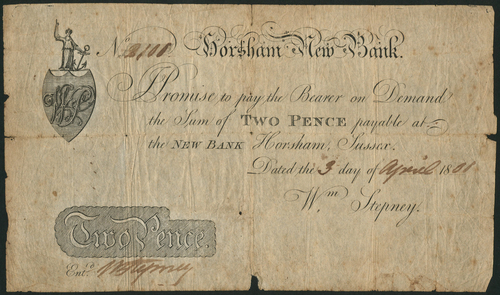 No. 2100 Horsham New Bank.
I Promise to pay the Bearer on Demand
the Sum of TWO PENCE payable at
the NEW BANK Horsham, Sussex.
Dated the 3 day of April 1801
Wm Stepney.
Two Pence.
Entd. WStepney